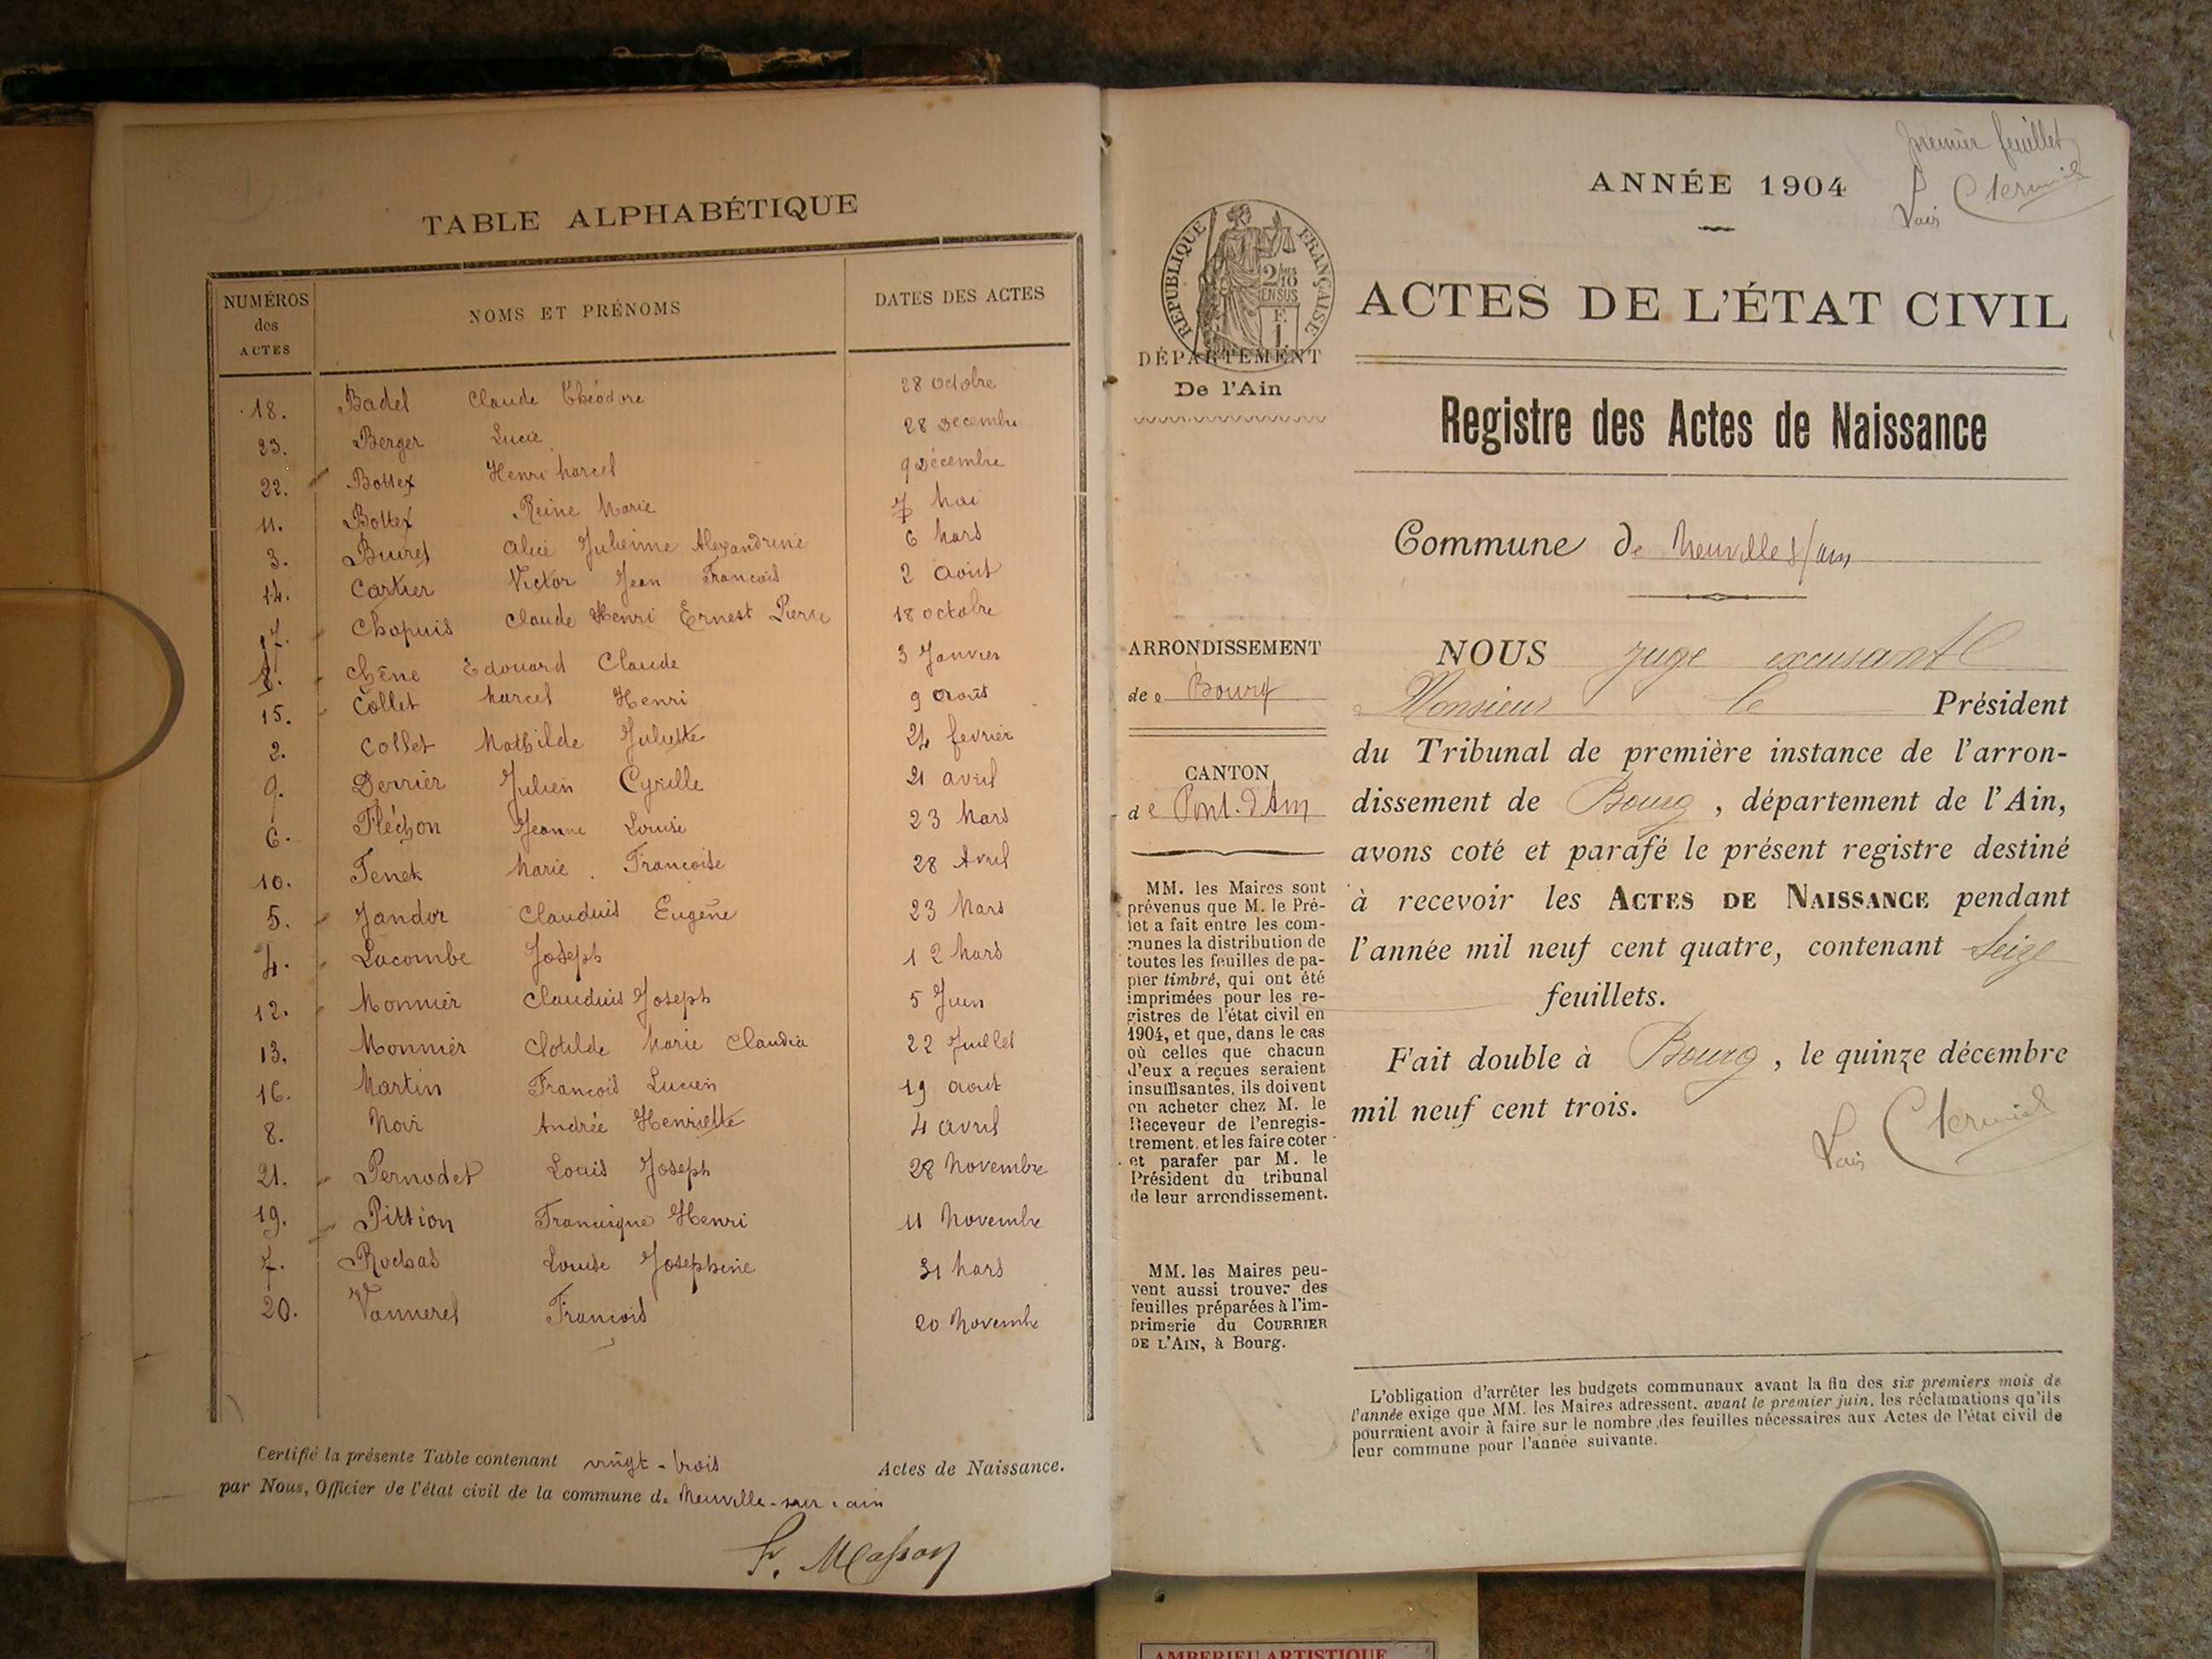 TABLE ALPHABÉTIQUE
NUMÉROS des ACTES NOMS ET PRÉNOMS DATES DES ACTES
18. Badel Claude Théodore 28 octobre
23. Berger Lucie 28 Décembre
22. Bottex Henri Marcel 9 Décembre
11. Bottex Reine Marie 7 Mai
3. Buiret Alice Julienne Alexandrine 6 Mars
14. Cartier Victor Jean François 2 août
17. Chapuis Claude Henri Ernest Pierre 18 octobre
1. Chêne Edouard Claude 3 Janvier
15. Collet Marcel Henri 9 août
2. Collet Mathilde Juliette 24 fevrier
9. Derrier Julien Cyrille 21 avril
6. Fléchon Jeanne Louise 23 Mars
10. Fenek Marie Francoise 28 Avril
5. Jandor Claudius Eugène 23 Mars
4. Lacombe Joseph 12 Mars
12. Monnier Claudius Joseph 5 Juin
13. Monnier Clotilde Marie Claudia 22 Juillet
16. Martin François Lucien 19 août
8. Noir Andrée Henriette 4 avril
21. Pernodet Louis Joseph 28 Novembre
19. Pittion Francisque Henri 11 Novembre
7. Rochas Louise Josephine 31 Mars
20. Vannerel François 20 Novembre
Certifié la présente Table contenant vingt-trois Actes de Naissance.
par Nous, Officier de l'état civil de la commune de Neuville-sur-ain
F. Masson
premier feuillet
ANNÉE 1904
RÉPUBLIQUE FRANÇAISE
2/10 EN SUS
F.
1.
ACTES DE L'ÉTAT CIVIL
DÉPARTEMENT
De l'Ain
Registre des Actes de Naissance
Commune de Neuville s/ain
ARRONDISSEMENT
de Bourg
CANTON
de Pont-d'Ain
MM. les Maires sont
prévenus que M. le Pré-
fet a fait entre les com-
munes la distribution de
toutes les feuilles de pa-
pier timbré, qui ont été
imprimées pour les re-
gistres de l'état civil en
1904, et que, dans le cas
où celles que chacun
d'eux a reçues seraient
insuffisantes, ils doivent
en acheter chez M. le
Receveur de l'enregis-
trement, et les faire coter
et parafer par M. le
Président du tribunal
de leur arrondissement.
MM. les Maires peu-
vent aussi trouver des
feuilles préparées à l'im-
primerie du COURRIER
DE L'AIN, à Bourg.
NOUS juge excusant
Monsieur le Président
du Tribunal de première instance de l'arron-
dissement de Bourg, département de l'Ain,
avons coté et parafé le présent registre destiné
à recevoir les ACTES DE NAISSANCE pendant
l'année mil neuf cent quatre, contenant Seize
feuillets.
Fait double à Bourg, le quinze décembre
mil neuf cent trois.
L'obligation d'arrêter les budgets communaux avant la fin des six premiers mois de
l'année exige que MM. les Maires adressent, avant le premier juin, les réclamations qu'ils
pourraient avoir à faire sur le nombre des feuilles nécessaires aux Actes de l'état civil de
leur commune pour l'année suivante.
AMBERIEU ARTISTIQUE